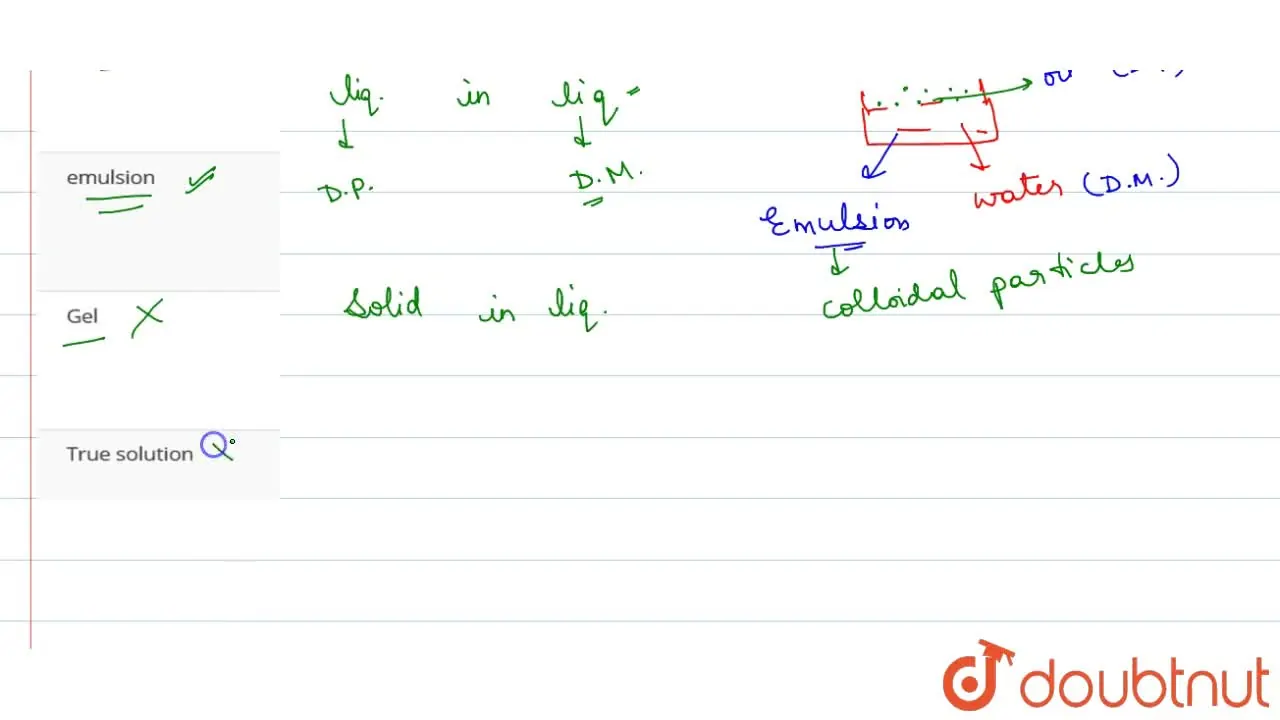 liq. in liq
D.P. D.M.
emulsion
water (D.M.)
Emulsion
colloidal particles
Gel
Solid in liq.
True solution
doubtnut